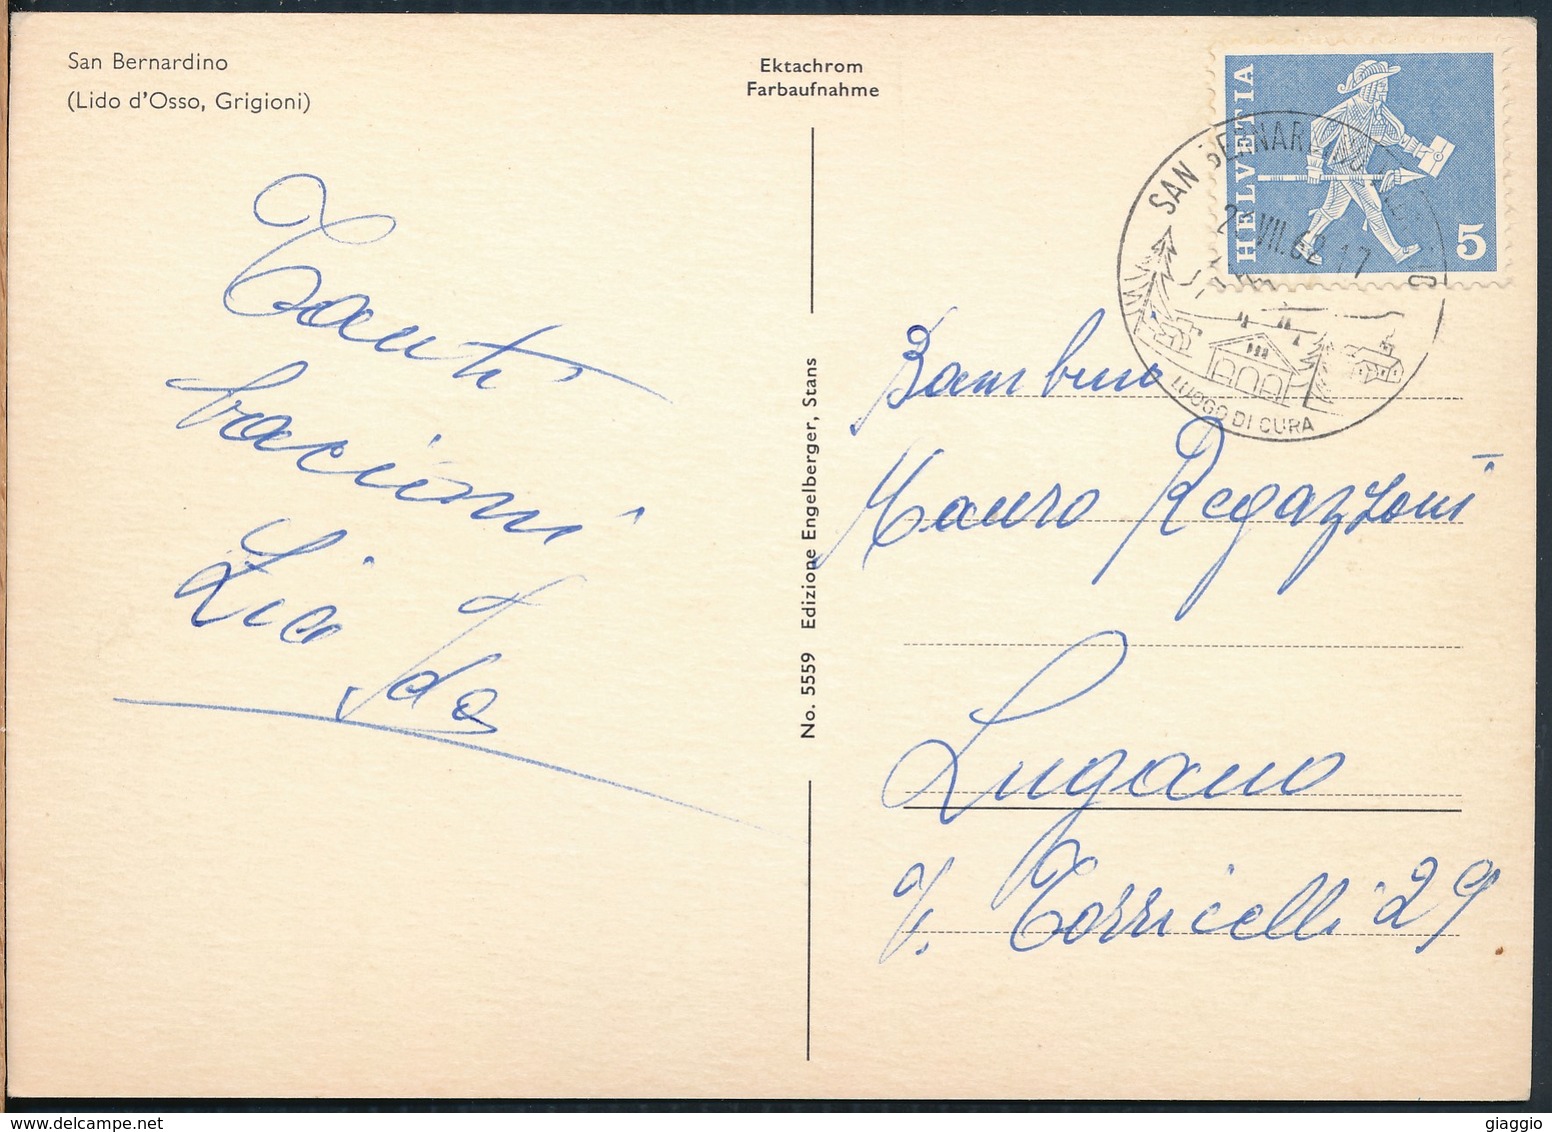 San Bernardino
(Lido d'Osso, Grigioni)
Ektachrom
Farbaufnahme
HELVETIA
5
SAN BERNARDINO
VII.62 17
LUOGO DI CURA
Tanti
bacioni
Zia Ida
No. 5559 Edizione Engelberger, Stans
Bambino
Mauro Regazzoni
Lugano
V. Torricelli 29
giaggio